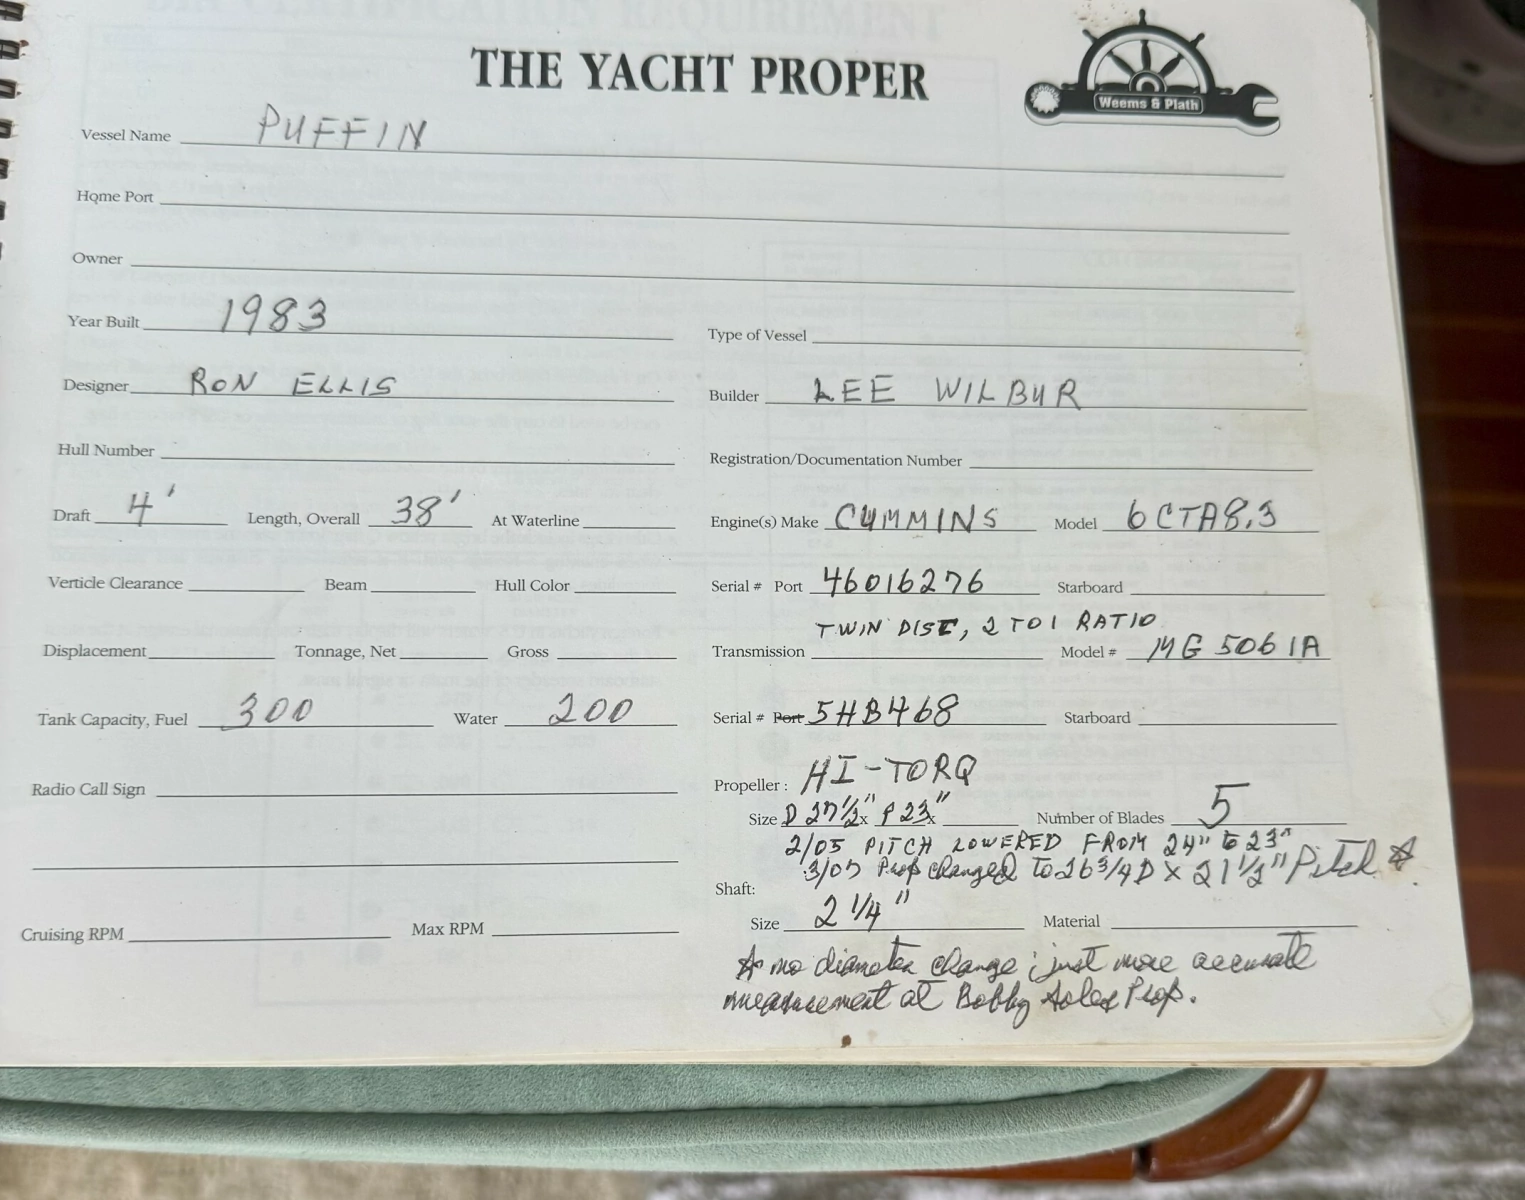 THE YACHT PROPER
Weems & Plath
Vessel Name PUFFIN
Home Port
Owner
Year Built 1983
Type of Vessel
Designer RON ELLIS
Builder LEE WILBUR
Hull Number
Registration/Documentation Number
Draft 4' Length, Overall 38' At Waterline
Engine(s) Make CUMMINS Model 6CTA8.3
Verticle Clearance Beam Hull Color
Serial # Port 46016276 Starboard
TWIN DISC, 2 TO 1 RATIO
Displacement Tonnage, Net Gross
Transmission Model # MG 5061A
Tank Capacity, Fuel 300 Water 200
Serial # Port 5HB468 Starboard
Radio Call Sign
Propeller: HI-TORQ
Size D 27 1/2" x P 23" x Number of Blades 5
2/05 PITCH LOWERED FROM 24" to 23"
3/07 Prop changed to 26 3/4 D x 21 1/2" Pitch ☆
Shaft:
Size 2 1/4" Material
Cruising RPM Max RPM
☆ no diameter change; just more accurate
measurement at Bobby Prop.